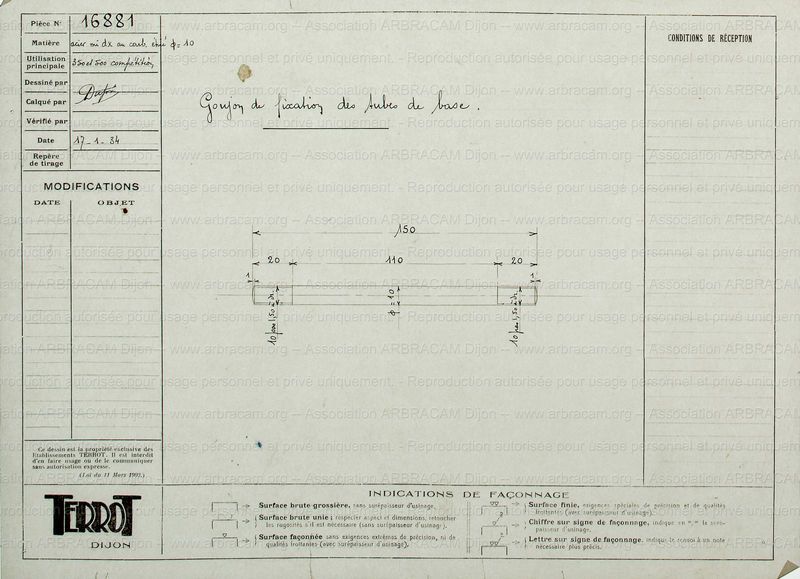 Pièce N° 16881
Matière acier mi dx au carb. étiré ϕ= 10
Utilisation principale 350 et 500 compétition
Dessiné par
Calqué par
Vérifié par
Date 17-1-34
Repère de tirage
MODIFICATIONS
DATE OBJET
Goujon de fixation des tubes de base.
CONDITIONS DE RÉCEPTION
150
20 110 20
1 1
10 pas 1,50
ϕ = 10
10 pas 1,50
Ce dessin est la propriété exclusive des
Etablissements TERROT. Il est interdit
d'en faire usage ou de le communiquer
sans autorisation expresse.
(Loi du 11 Mars 1902.)
TERROT
DIJON
INDICATIONS DE FAÇONNAGE
Surface brute grossière, sans surépaisseur d'usinage.
Surface brute unie ; respecter aspect et dimensions, retoucher
les rugosités s'il est nécessaire (sans surépaisseur d'usinage).
Surface façonnée sans exigences extrêmes de précision, ni de
qualités frottantes (avec surépaisseur d'usinage).
Surface finie, exigences spéciales de précision et de qualités
frottantes (avec surépaisseur d'usinage).
Chiffre sur signe de façonnage, indique en "/" la surépaisseur d'usinage.
Lettre sur signe de façonnage, indique le renvoi à une note
nécessaire plus précis.
www.arbracam.org -- Association ARBRACAM Dijon -- www.arbracam.org -- Association ARBRACAM Dijon
Reproduction autorisée pour usage personnel et privé uniquement. - Reproduction autorisée pour usage personnel et privé uniquement.